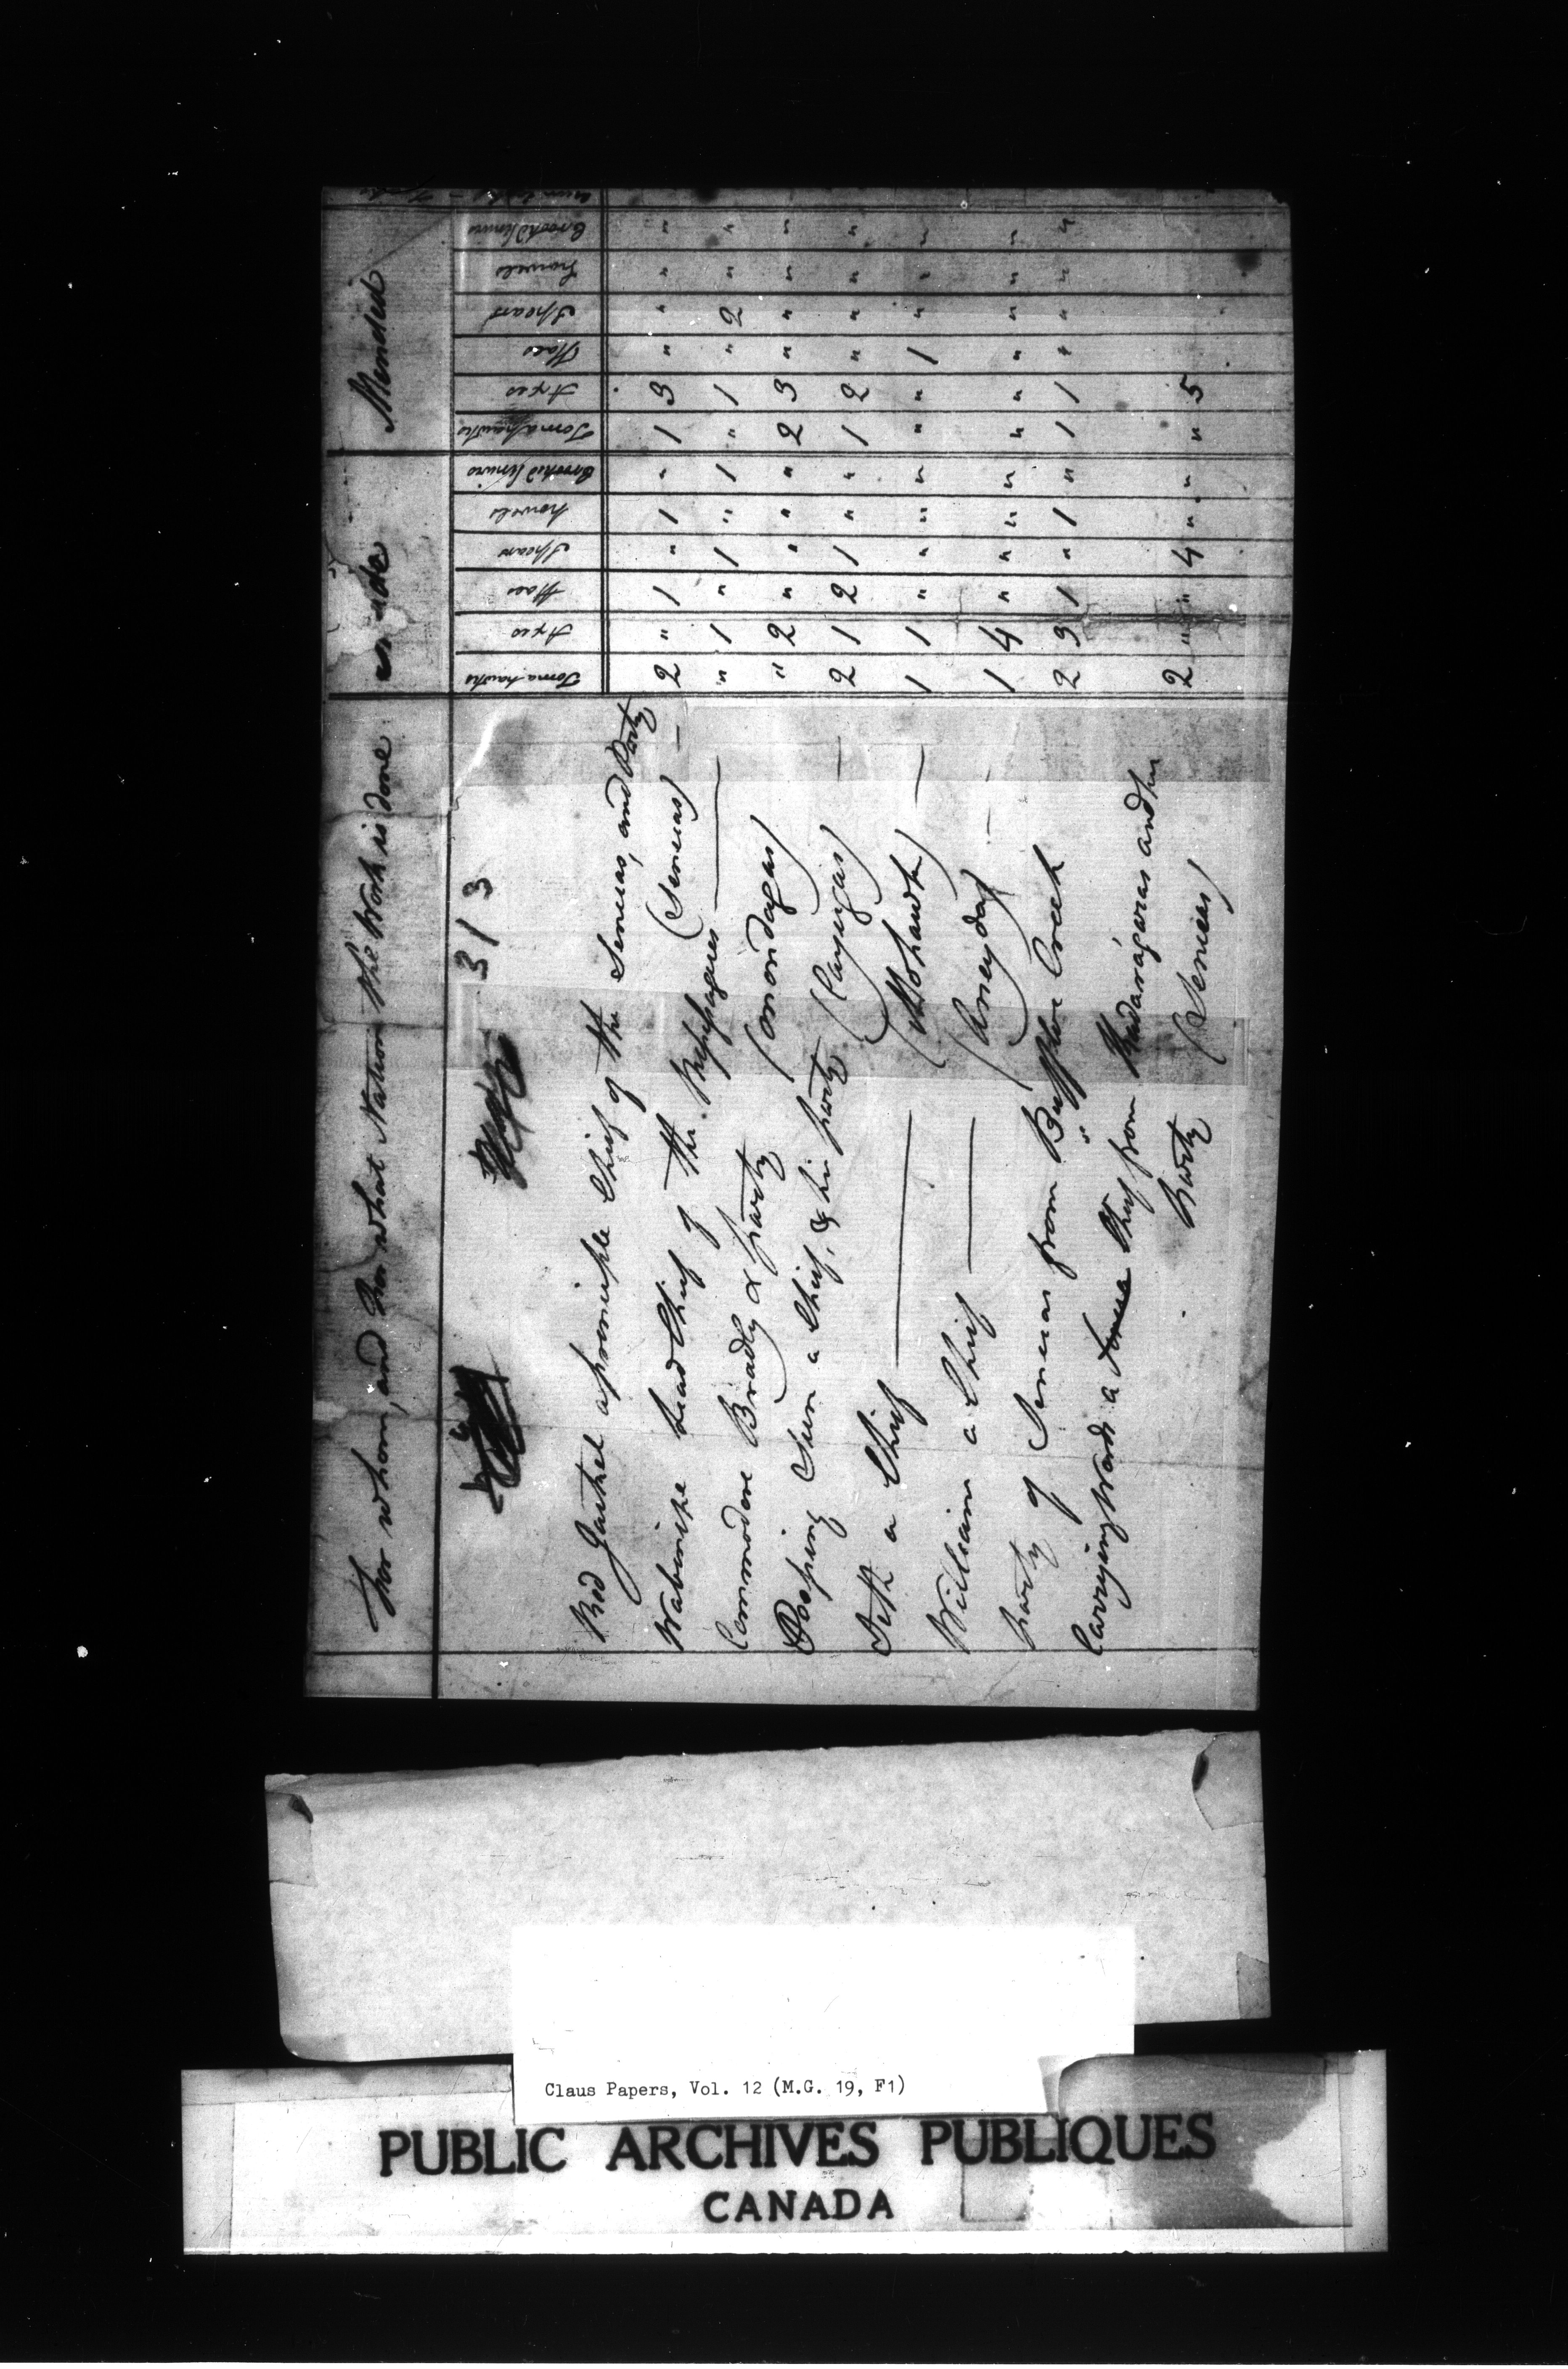 For whom, and for what Nation the Work is done made Mended
313
Tomahawks Axes Hoes Spears Trowels Crooked knives Tomahawks Axes Hoes Spears Trowels Crooked knives
Red Jacket a principle Chief of the Senecas, and Party
(Senecas) — 2 " 1 " 1 " 1 3 " " " "
Wabinipe head Chief of the Missisagues — " 1 " 1 " 1 " 1 " 2 " "
Commodore Bradly & party (onondagas) " 2 " " " " 2 3 " " " "
Sun a Chief, & his party (Cayugas) — 2 1 2 1 " " 1 2 " " " "
a Chief — (Mohawk) — 1 1 " " " " " " 1 " " "
William a Chief — (Oneydas) — 1 4 " " " " " " " " " "
party of Senecas from Buffloe Creek 2 3 1 " 1 " 1 1 " " " "
Carrying Wards a Chief from and his
Party (Senecas) 2 " " 4 " " " 5
Claus Papers, Vol. 12 (M.G. 19, F1)
PUBLIC ARCHIVES PUBLIQUES
CANADA